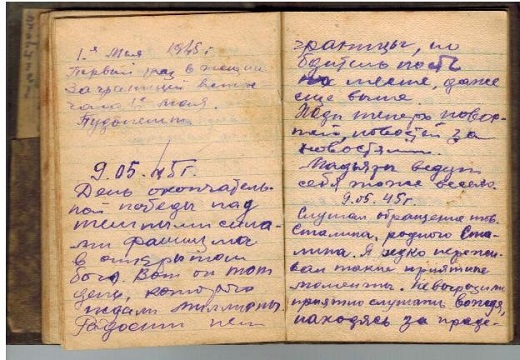 1.я Мая 1945 г.
Первый раз в жизни
за границей встре
чаю 1е мая.
Будапешт
9.05.45 г.
День окончатель-
ной победы над
темными сила-
ми фашизма
в открытом
бою. Вот он тот
день, которого
ждали миллионы.
Радости нет
границы, но
бдительность
на месте, даже
еще выше.
Жди теперь новос-
тей, новостей за
новостями.
Мадьяры ведут
себя тоже весело.
9.05.45 г.
Слушал обращение тов.
Сталина, родного Ста-
лина. Я редко пережи-
вал такие приятные
моменты.
приятно слушать вождя,
находясь за преде-